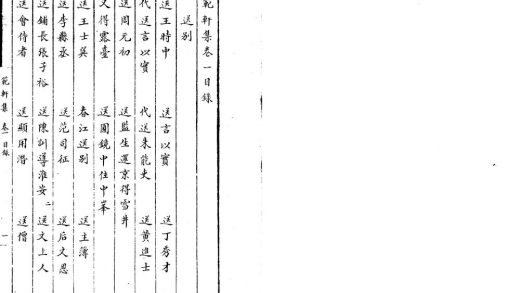 範軒集卷一目錄
送別
送王時中 送言以實 送丁秀才
代送言以實 代送朱能史 送黃進士
送周元初 送監生還京得雪井
又得露臺 送圓鏡中住中峯
送王士英 春江送別 送主簿
送李縣丞 送范司征 送后文恩
送鋪長張子裕 送陳訓導淮安二 送文上人
送會侍者 送顯用潛 送僧
範軒集 卷一目錄 一